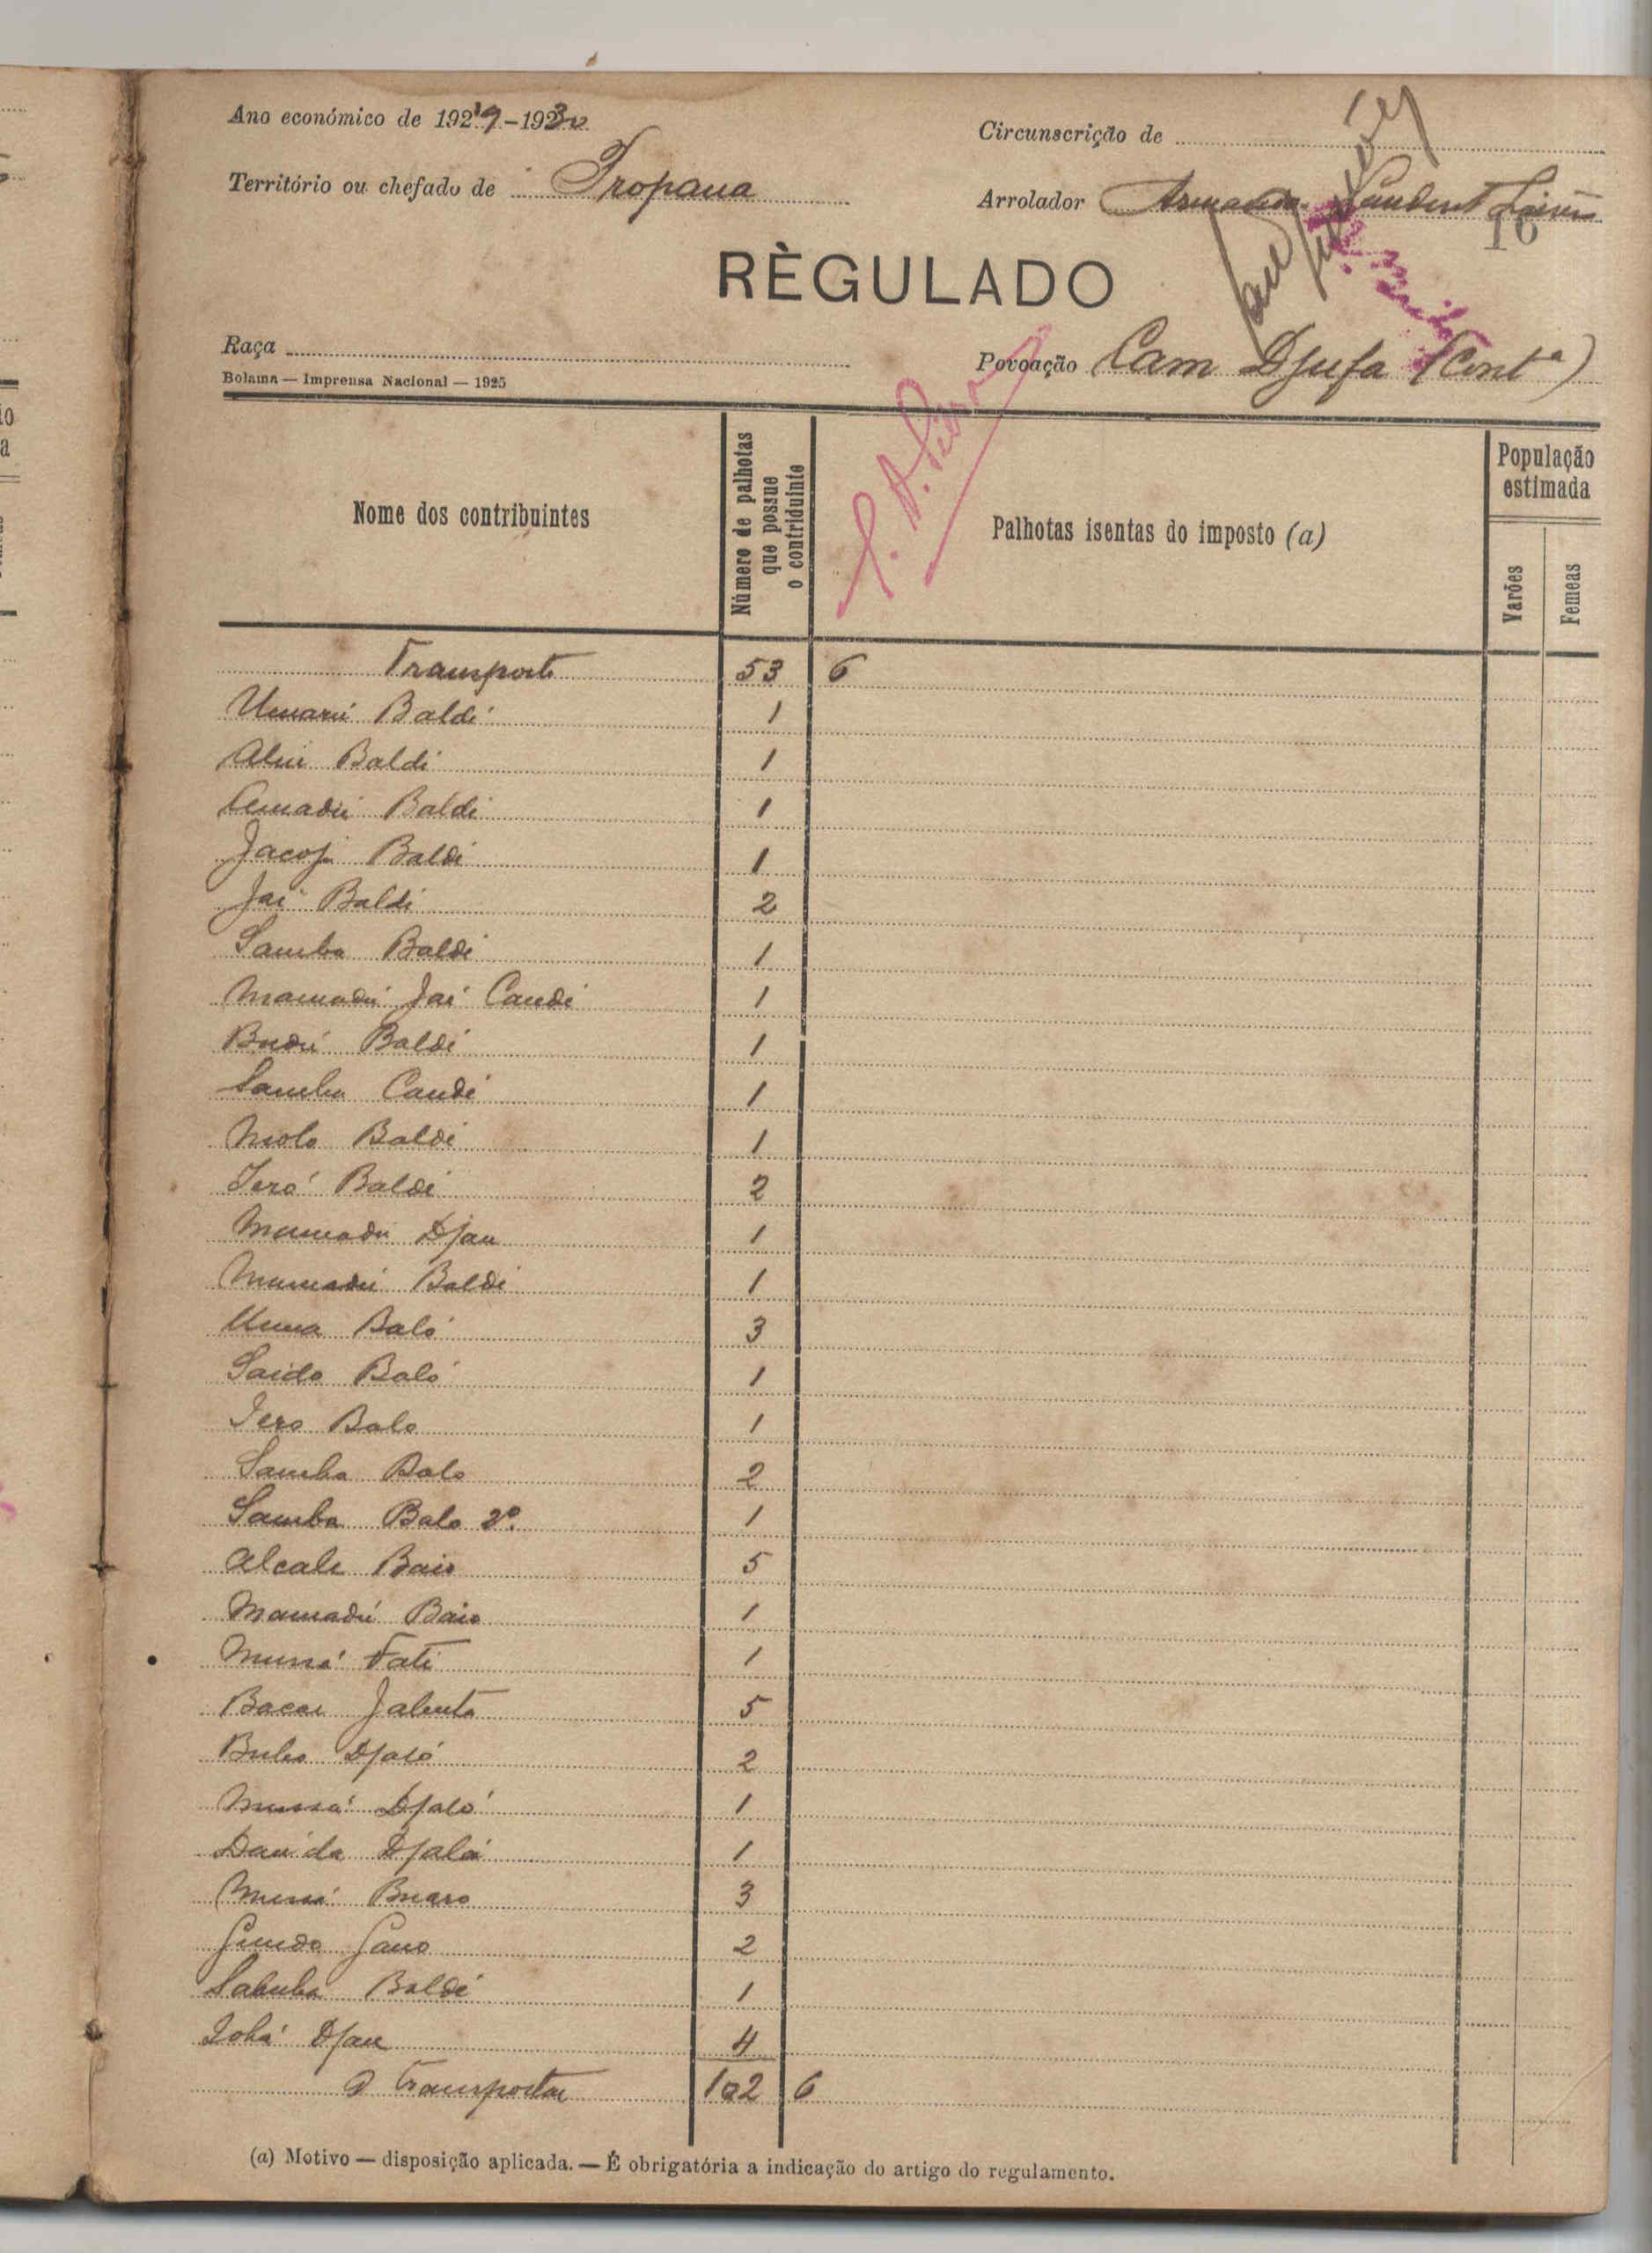 Ano económico de 1929-1930
Circunscrição de
Território ou chefado de Propana
Arrolador Armando
16
RÈGULADO
Raça
Povoação Cam Djufa (Contª)
Bolama — Imprensa Nacional — 1925
Nome dos contribuintes
Número de palhotas que possue o contriduinte
Palhotas isentas do imposto (a)
População estimada
Varões
Femeas
Transporte 53 6
Umarú Baldé 1
Aliu Baldé 1
Amadú Baldé 1
Baldé 1
Jai Baldé 2
Samba Baldé 1
Mamadú Jai Candé 1
Baldé 1
Samba Candé 1
Molo Baldé 1
Ieró Baldé 2
Mamadú Djau 1
Mamadú Baldé 1
Baló 3
Saido Baló 1
Iero Balo 1
Samba Balo 2
Samba Balo 2º. 1
Alcale Baio 5
Mamadú Baio 1
Mussá Fati 1
Bacar 5
Djaló 2
Mussá Djaló 1
Djaló 1
Mussá 3
Gano 2
Baldé 1
Djau 4
A transportar 102 6
(a) Motivo — disposição aplicada. — É obrigatória a indicação do artigo do regulamento.